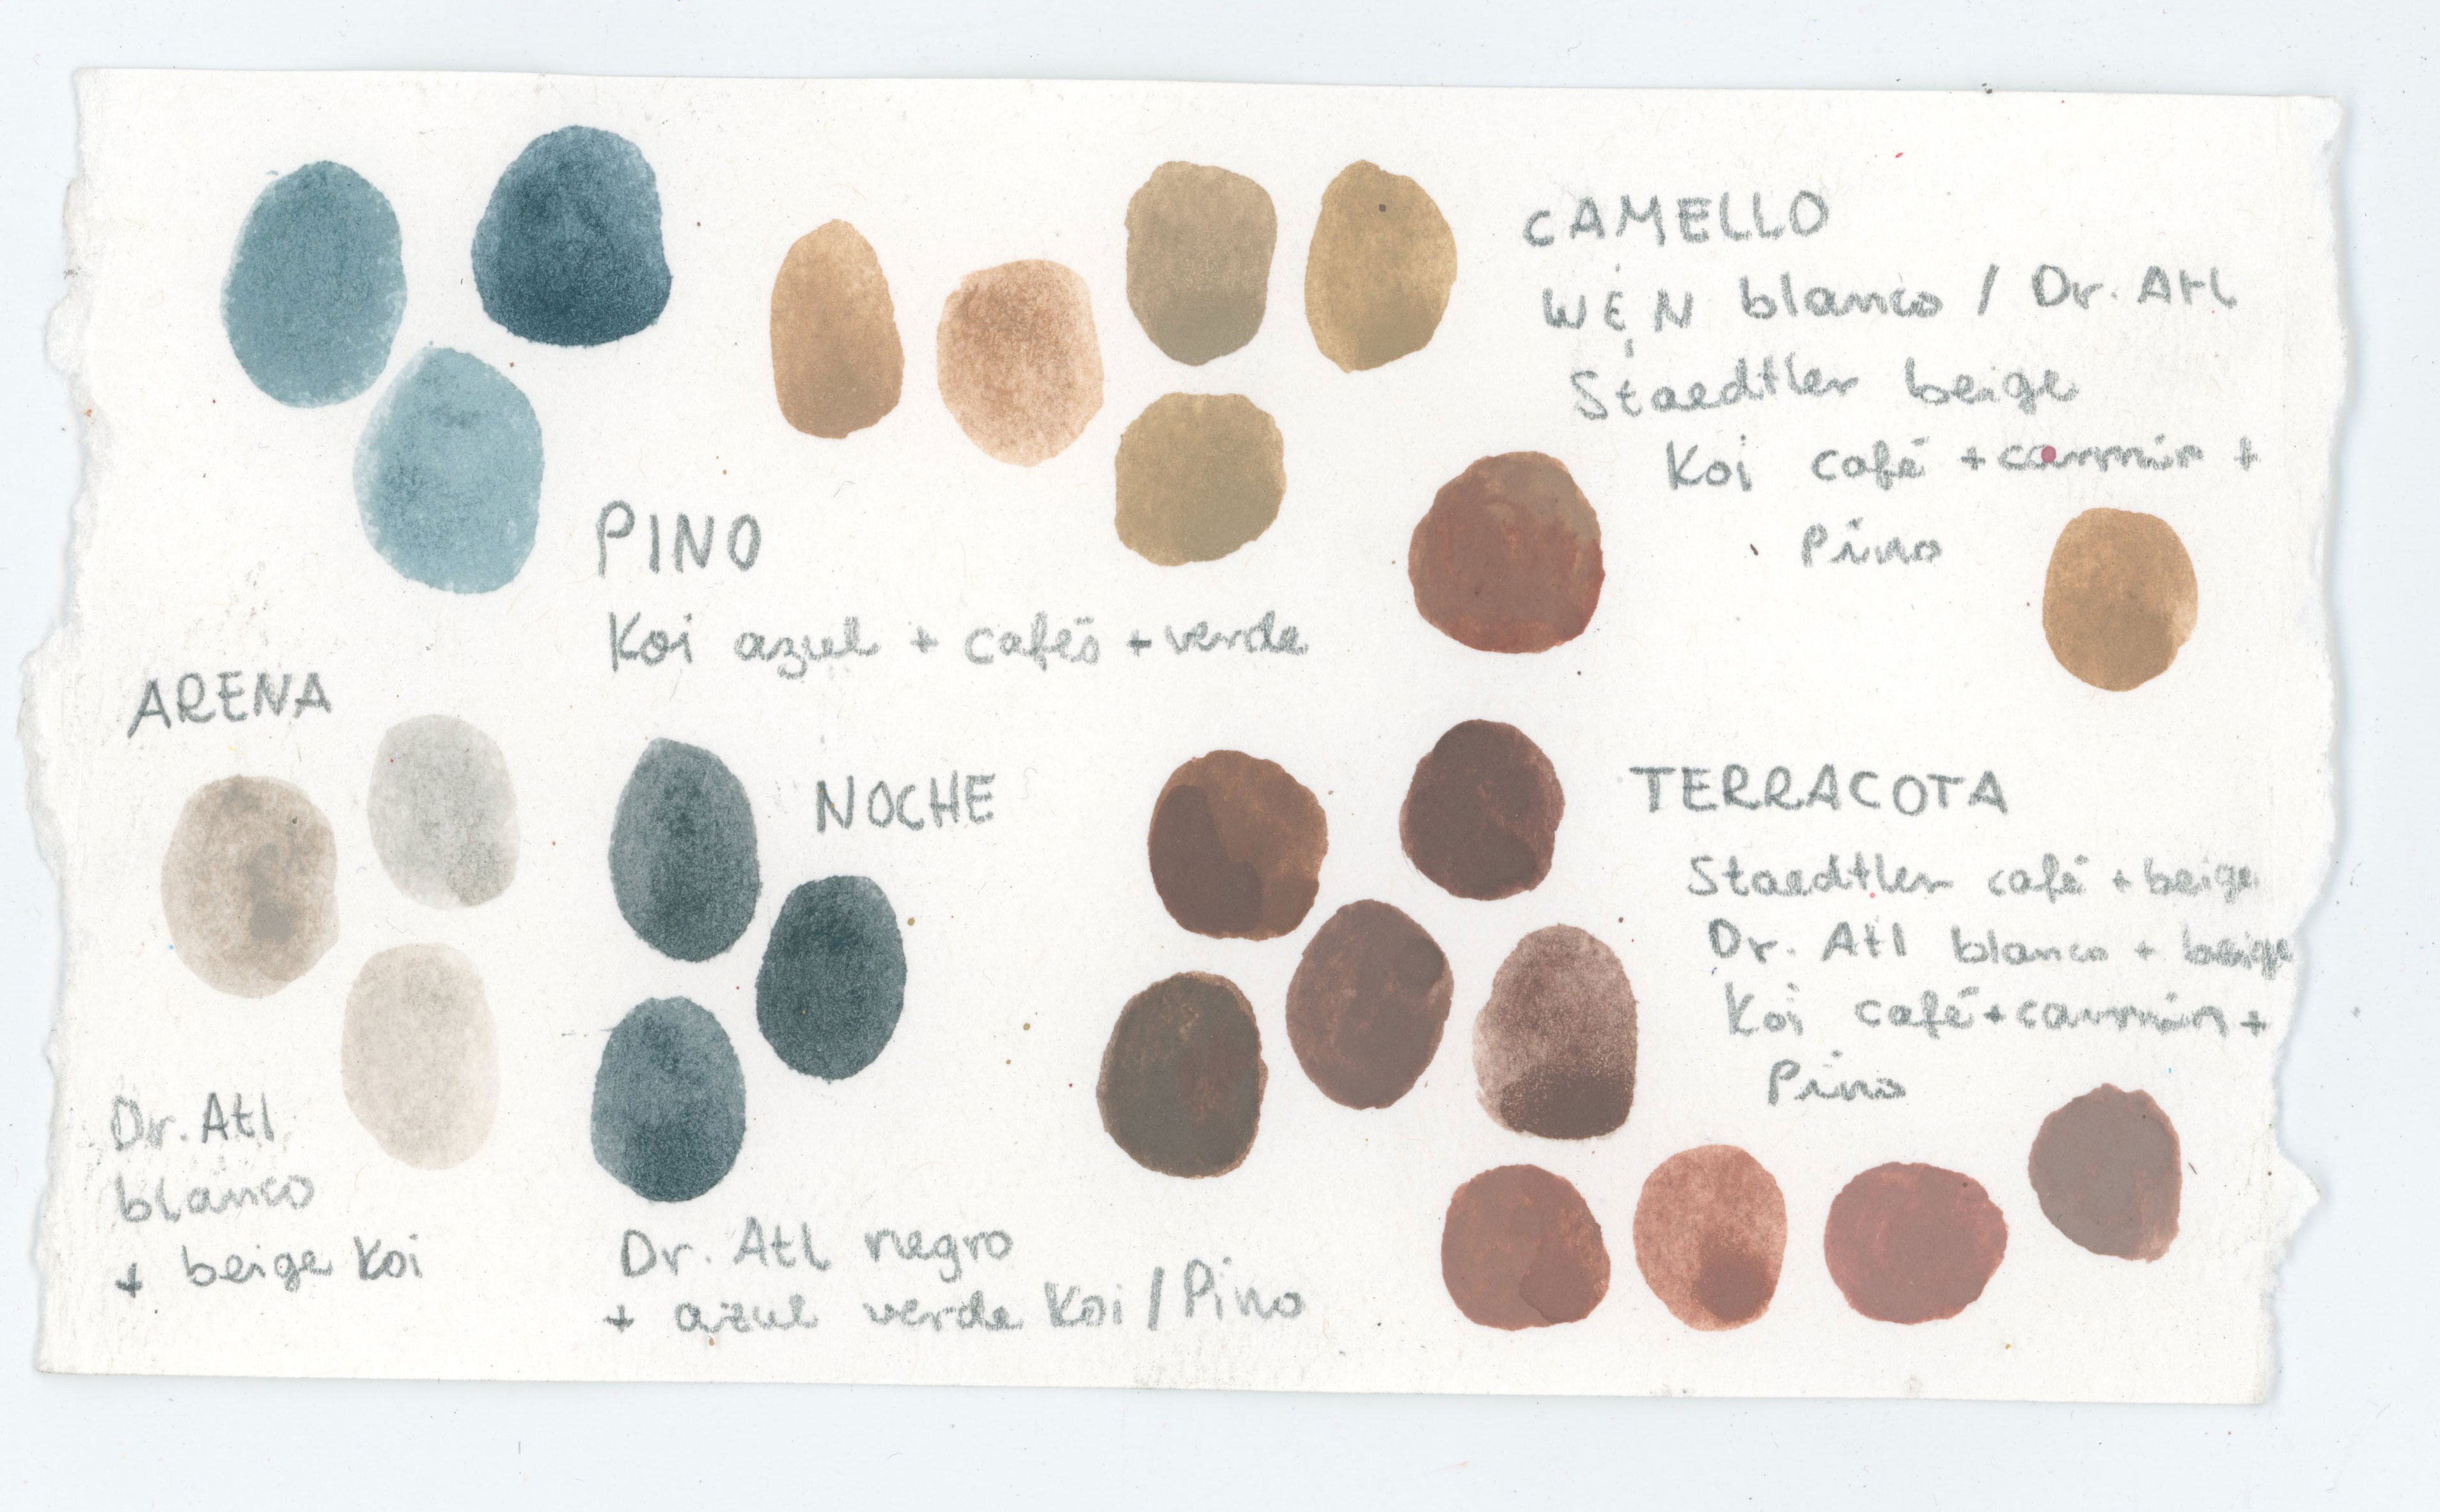 CAMELLO
W&N blanco / Dr. Atl
Staedtler beige
Koi café + carmin +
Pino
PINO
Koi azul + cafés + verde
ARENA
Dr. Atl
blanco
+ beige Koi
NOCHE
Dr. Atl negro
+ azul verde Koi / Pino
TERRACOTA
Staedtler café + beige
Dr. Atl blanco + beige
Koi café + carmin +
Pino